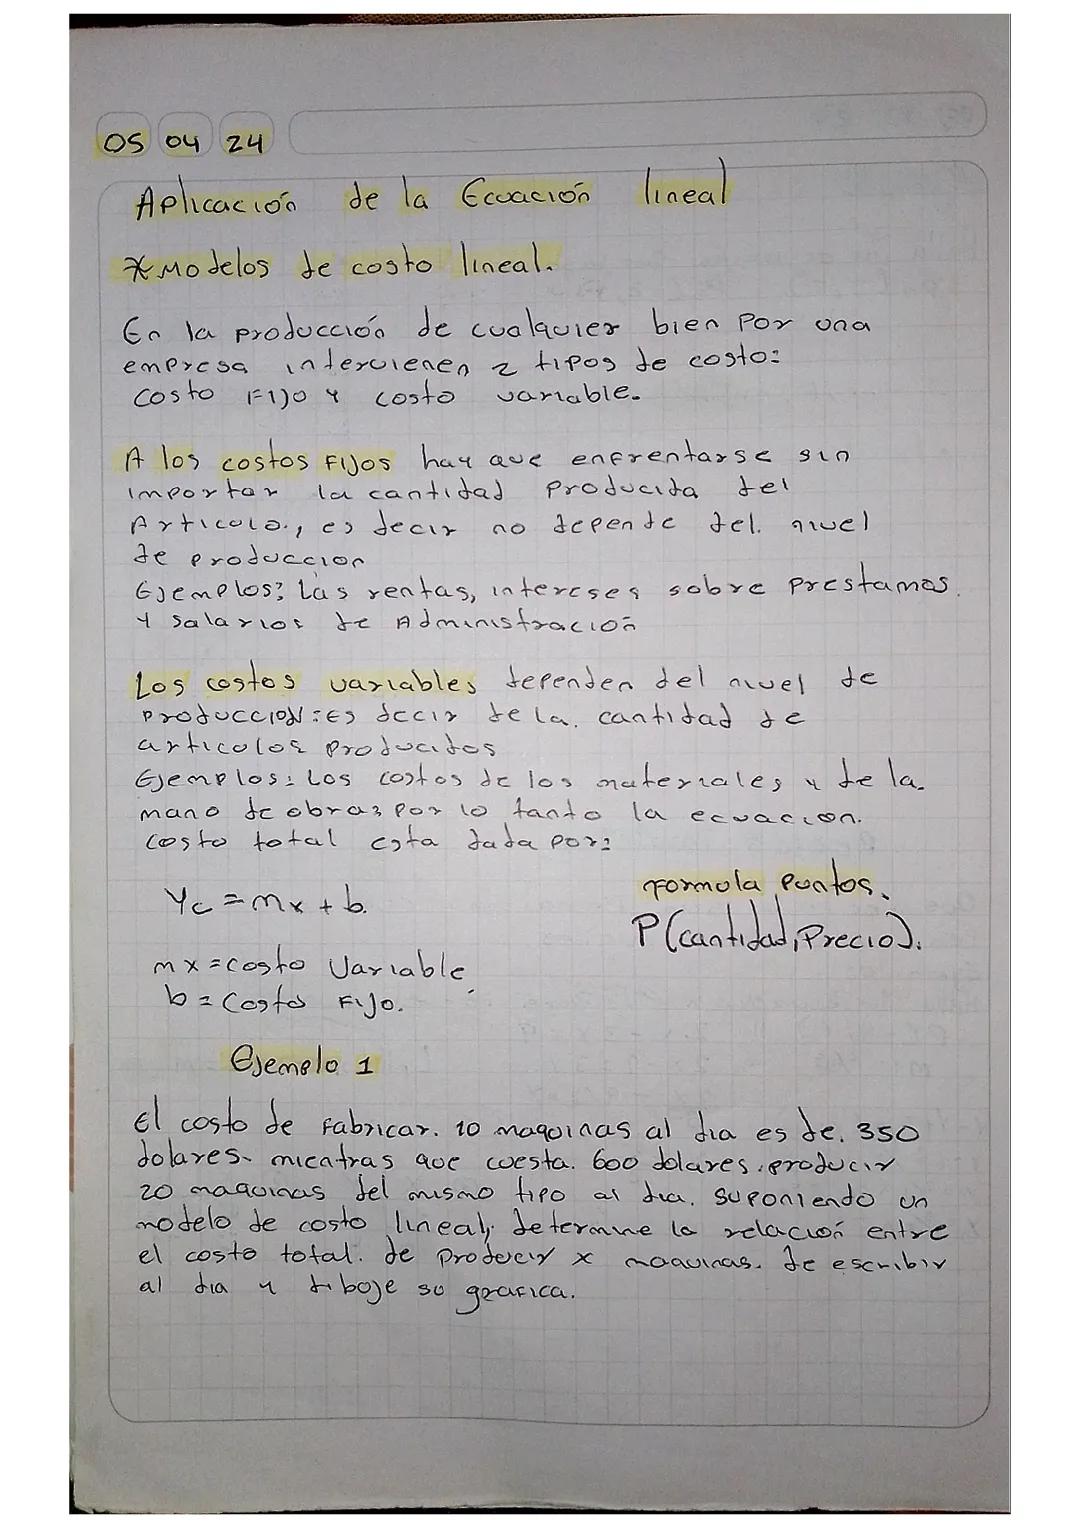 05 04 24
Aplicación de la Ecuación lineal
* Modelos de costo lineal.
En la producción de cualquier bien por una
empresa intervienen 2 tipos de costo:
costo Fijo y costo variable.
A los costos Fijos hay que enfrentarse sin
importar la cantidad producida del
Articulo., es decir no depende del. nivel
de produccion
Ejemplos: Las rentas, intereses sobre prestamos.
y salarios de Administración
Los costos variables dependen del nivel de
PRODUCCION: Es decir de la. cantidad de
articulos producidos
Ejemplos: Los costos de los materiales y de la.
mano de obras por lo tanto la ecuacion.
costo total esta dada por:
Yc = mx + b.
formula puntos.
P(cantidad, Precio).
mx = costo Variable.
b = Costo Fijo.
Ejemplo 1
El costo de Fabricar. 10 maquinas al dia es de. 350
dolares. mientras que cuesta. 600 dolares. producir
20 maquinas del mismo tipo al dia. suponiendo un
modelo de costo lineal, determine la relación entre
el costo total. de producir x maquinas. de escribir
al dia y diboje su grafica.